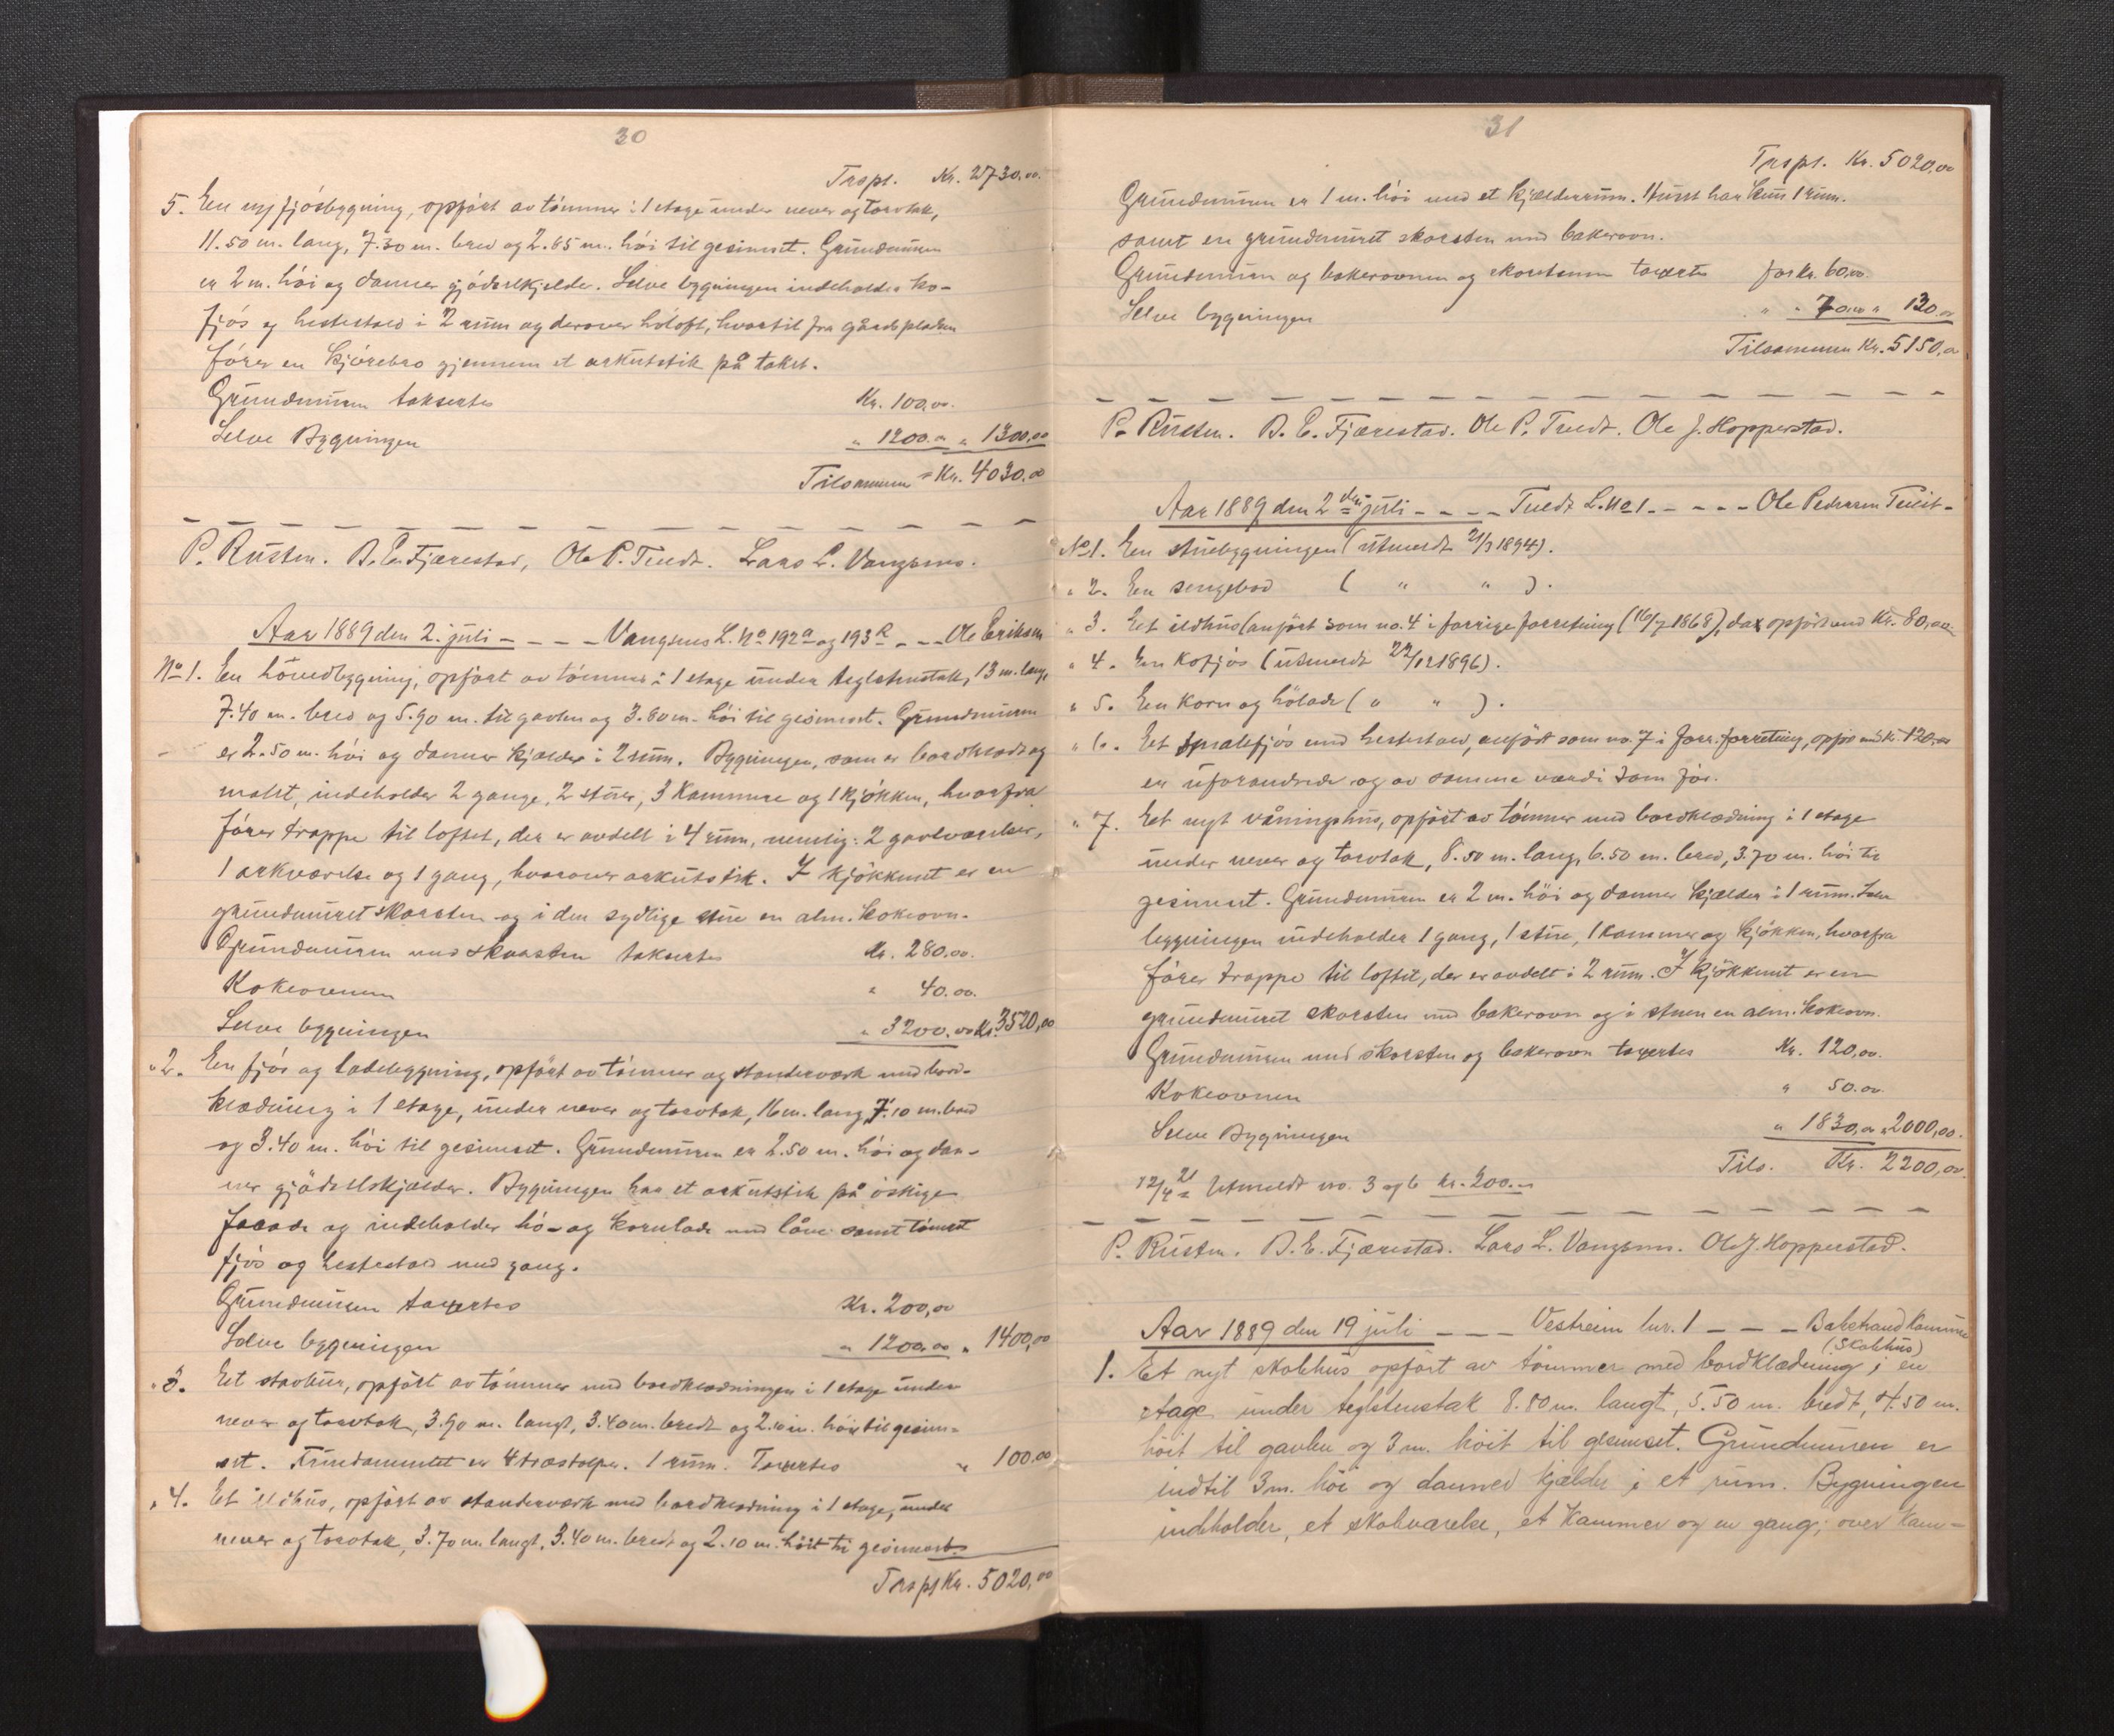 30
Trspt. Kr. 2730.00.
5. En ny fjósbygning, opført av tømmer i 1 etage under never og torvtak,
11.50 m. lang, 7.30 m. bred og 2.65 m. hói til gesimset. Grundmuren
er 2 m. hói og danner gjødselkjelder. Selve bygningen indeholder ko-
fjós og hestestald i 2 rum og derover hóloft, hvortil fra gårdspladsen
fórer en kjórebro gjennem et arkutstik på taket.
Grundmuren taksertes Kr. 100,00.
Selve Bygningen " 1200.00 " 1300,00
Tilsammen Kr. 4030.00
P. Rusten. B. E. Fjærestad, Ole P. Tuedt. Lars L. Vangsnes.
Aar 1889 den 2. juli - - - - Vangsnes L. No 192a og 193 - - - Ole Eriksen
No 1. En hóvedbygning, opført av tómmer i 1 etage under teglstenstak, 13 m. lang,
7.40 m. bred og 5.90 m. til gavlen og 3.80 m. hói til gesimset. Grundmuren
er 2.50 m. hói og danner kjælder i 2 rum. Bygningen, som er bordklædt og
malet, indeholder 2 gange, 2 stuer, 3 kammere og 1 kjókken, hvorfra
fórer trappe til loftet, der er avdelt i 4 rum, nemlig: 2 gavlværelser,
1 arkværelse og 1 gang, hvorover arkutstik. I kjökkenet er en
grundmuret skorsten og i den sydlige stue en alm. kokeovn.
Grundmuren med skorsten taksertes Kr. 280.00.
Kokeovnen " 40.00.
Selve bygningen " 3200.00 Kr. 3520,00
"2. En fjós og ladebygning, opført av tómmer og standerværk med bord-
klædning i 1 etage, under never og torvtak, 16 m. lang, 7.10 m. bred
og 3.40 m. hói til gesimset. Grundmuren er 2.50 m. hói og dan-
ner gjødselskjælder. Bygningen har et arkutstik på óstlige
facade og indeholder hó- og kornlade med låve samt tómret
fjós og hestestald med gang.
Grundmuren taxertes Kr. 200,00
Selve bygningen " 1200,00 " 1400,00
"3. Et stavbur, opfört av tómmer med bordklædningen i 1 etage under
never og torvtak, 3.90 m. langt, 3.40 m. bredt og 2.10 m. hói til gesim-
set. Fundamentet er 4 træstolper. 1 rum. Taxertes " 100.00
"4. Et ildhus, opført av standerværk med bordklædning i 1 etage, under
never og torvtak, 3.70 m. langt, 3.40 m. bredt og 2.10 m. hóit til gesimset.
Trspt Kr. 5020,00
31
Trspt. Kr. 5020,00
Grundmuren er 1 m. hói med et kjælderrum. Huset har kun 1 rum.
samt en grundmuret skorsten med bakerovn.
Grundmuren og bakerovnen og skorstenen taxertes for kr. 60,00.
Selve bygningen " " 70.00 " 130.00
Tilsammen Kr. 5150,00
P. Rusten. B. E. Fjærestad. Ole P. Tuedt. Ole J. Hopperstad.
Aar 1889 den 2den juli - - - - Tuedt L. No 1 - - - - - Ole Pedersen Tuedt -
No 1. En stuebygningen (utmeldt 21/3 1894).
" 2. En sengebod ( " " ).
" 3. Et ildhus (anfört som no. 4 i forrige forretning (16/7 1868), da opført med Kr. 80,00
" 4. En kofjós (utmeldt 22/12 1896).
" 5. En korn og hólade ( " " ).
" 6. Et smalefjós med hestestald, anfört som no. 7 i forr. forretning, opfór med kr. 120,00
er uforandrede og av samme værdi som fór.
" 7. Et nyt våningshus, opført av tómmer med bordklædning i 1 etage
under never og torvtak, 8.50 m. lang, 6.50 m. bred, 3.70 m. hói til
gesimset. Grundmuren er 2 m. hói og danner kjælder i 1 rum. Selve
bygningen indeholder 1 gang, 1 stue, 1 kammer og kjókken, hvorfra
fórer trappe til loftet, der er avdelt i 2 rum. I kjökkenet er en
grundmuret skorsten med bakerovn og i stuen en alm. kokeovn.
Grundmuren med skorsten og bakerovn taxertes Kr. 120,00.
Kokeovnen " 50.00
Selve Bygningen " 1830,00 " 2000,00.
Tils. Kr. 2200,00
12/4 21 Utmeldt no. 3 og 6 kr. 200.00
P. Rusten. B. E. Fjærestad. Lars L. Vangsnes. Ole J. Hopperstad.
Aar 1889 den 19 juli - - - Vestreim lnr. 1 - - - Balestrand Kommune
(Skolehus)
1. Et nyt skolehus opført av tømmer med bordklædning i en
etage under teglstenstak 8.80 m. langt, 5.50 m. bredt, 4.50 m.
höit til gavlen og 3 m. höit til gesimset. Grundmuren er
indtil 3 m. höi og danner kjælder i et rum. Bygningen
indeholder, et skoleværelse, et kammer og en gang; over kam-